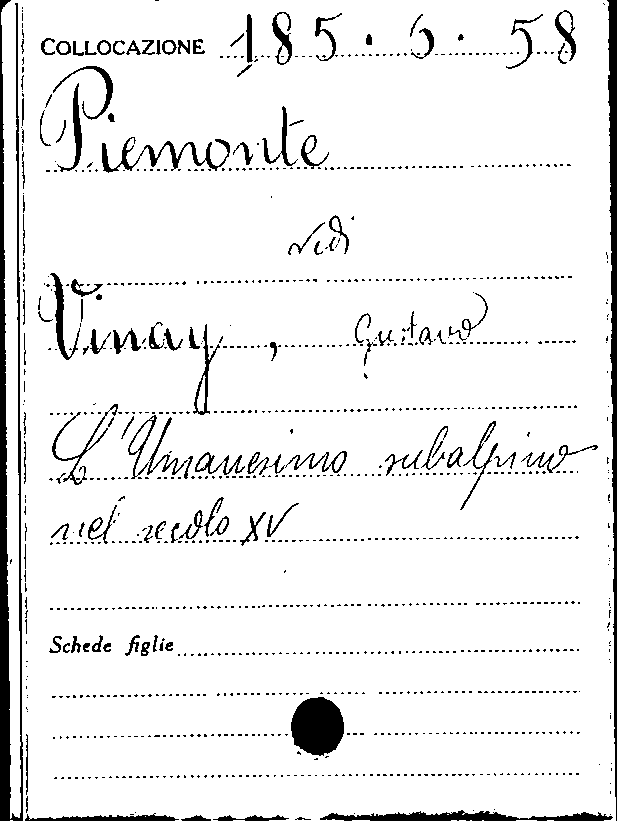 COLLOCAZIONE 185.6.58
Piemonte
vedi
Vinay, Gustavo
L'Umanesimo subalpino
nel secolo XV
Schede figlie